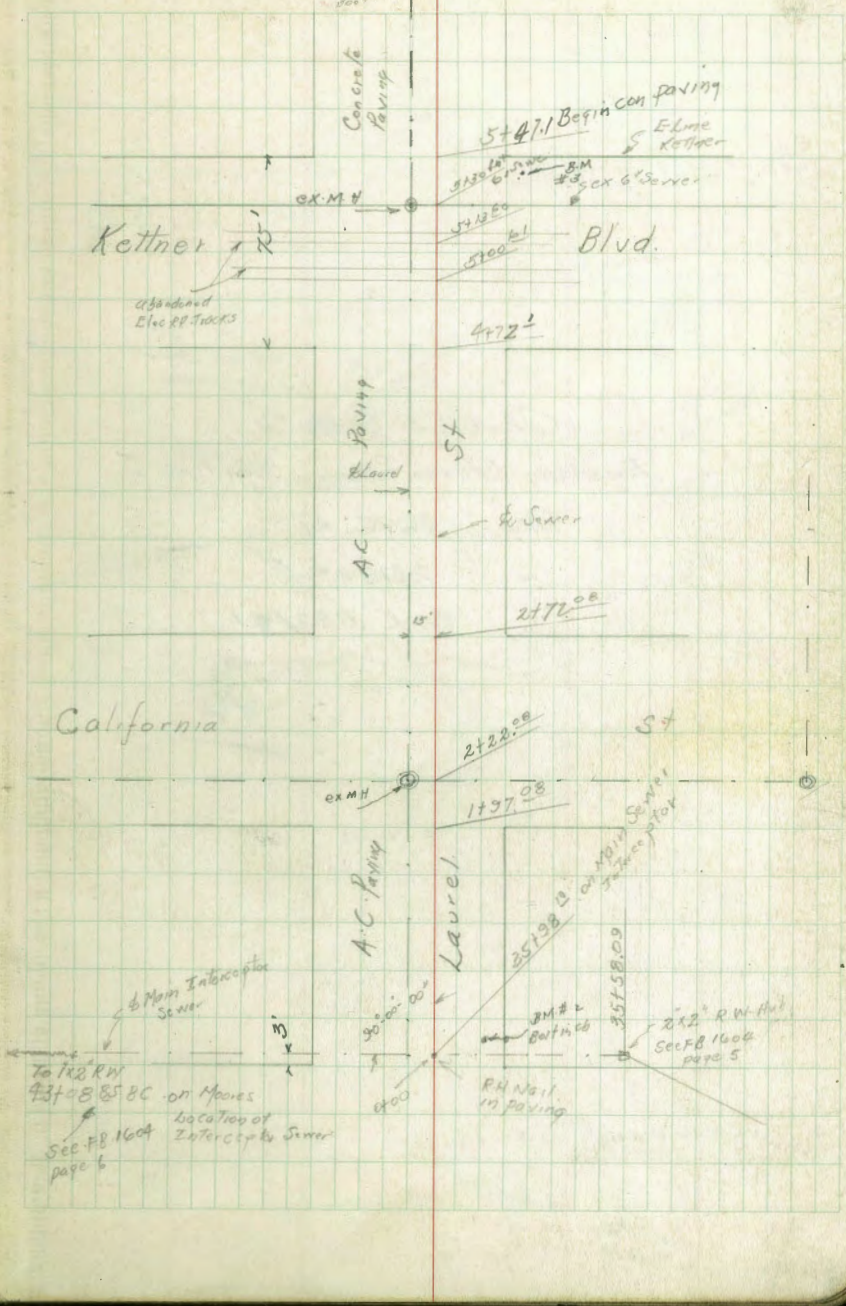 Concrete
Paving
5+47.1 Begin con paving
E Line
Kettner
B.M
#3
ex 6" Sewer
ex. M.H
5+13 60
5+00 61
Kettner
75'
Blvd.
abandoned
Elec RR Tracks
4+72 1
A.C. Paving
St
℄ Laurel
℄ Sewer
15'
2+72.08
California
St
2+22.08
ex MH
1+97.08
A.C. Paving
Laurel
35+98 on Main Sewer
Interceptor
35+58.09
℄ Main Interceptor
Sewer
3'
90°-00'-00"
BM #2
2"x2" R.W. Hub
See FB 1604
page 5
To 1x2 R.W
43+08.85 BC on Moores
Location of
Intercepter Sewer
See FB 1604
page 6
0+00
R.H. Nail
in Paving